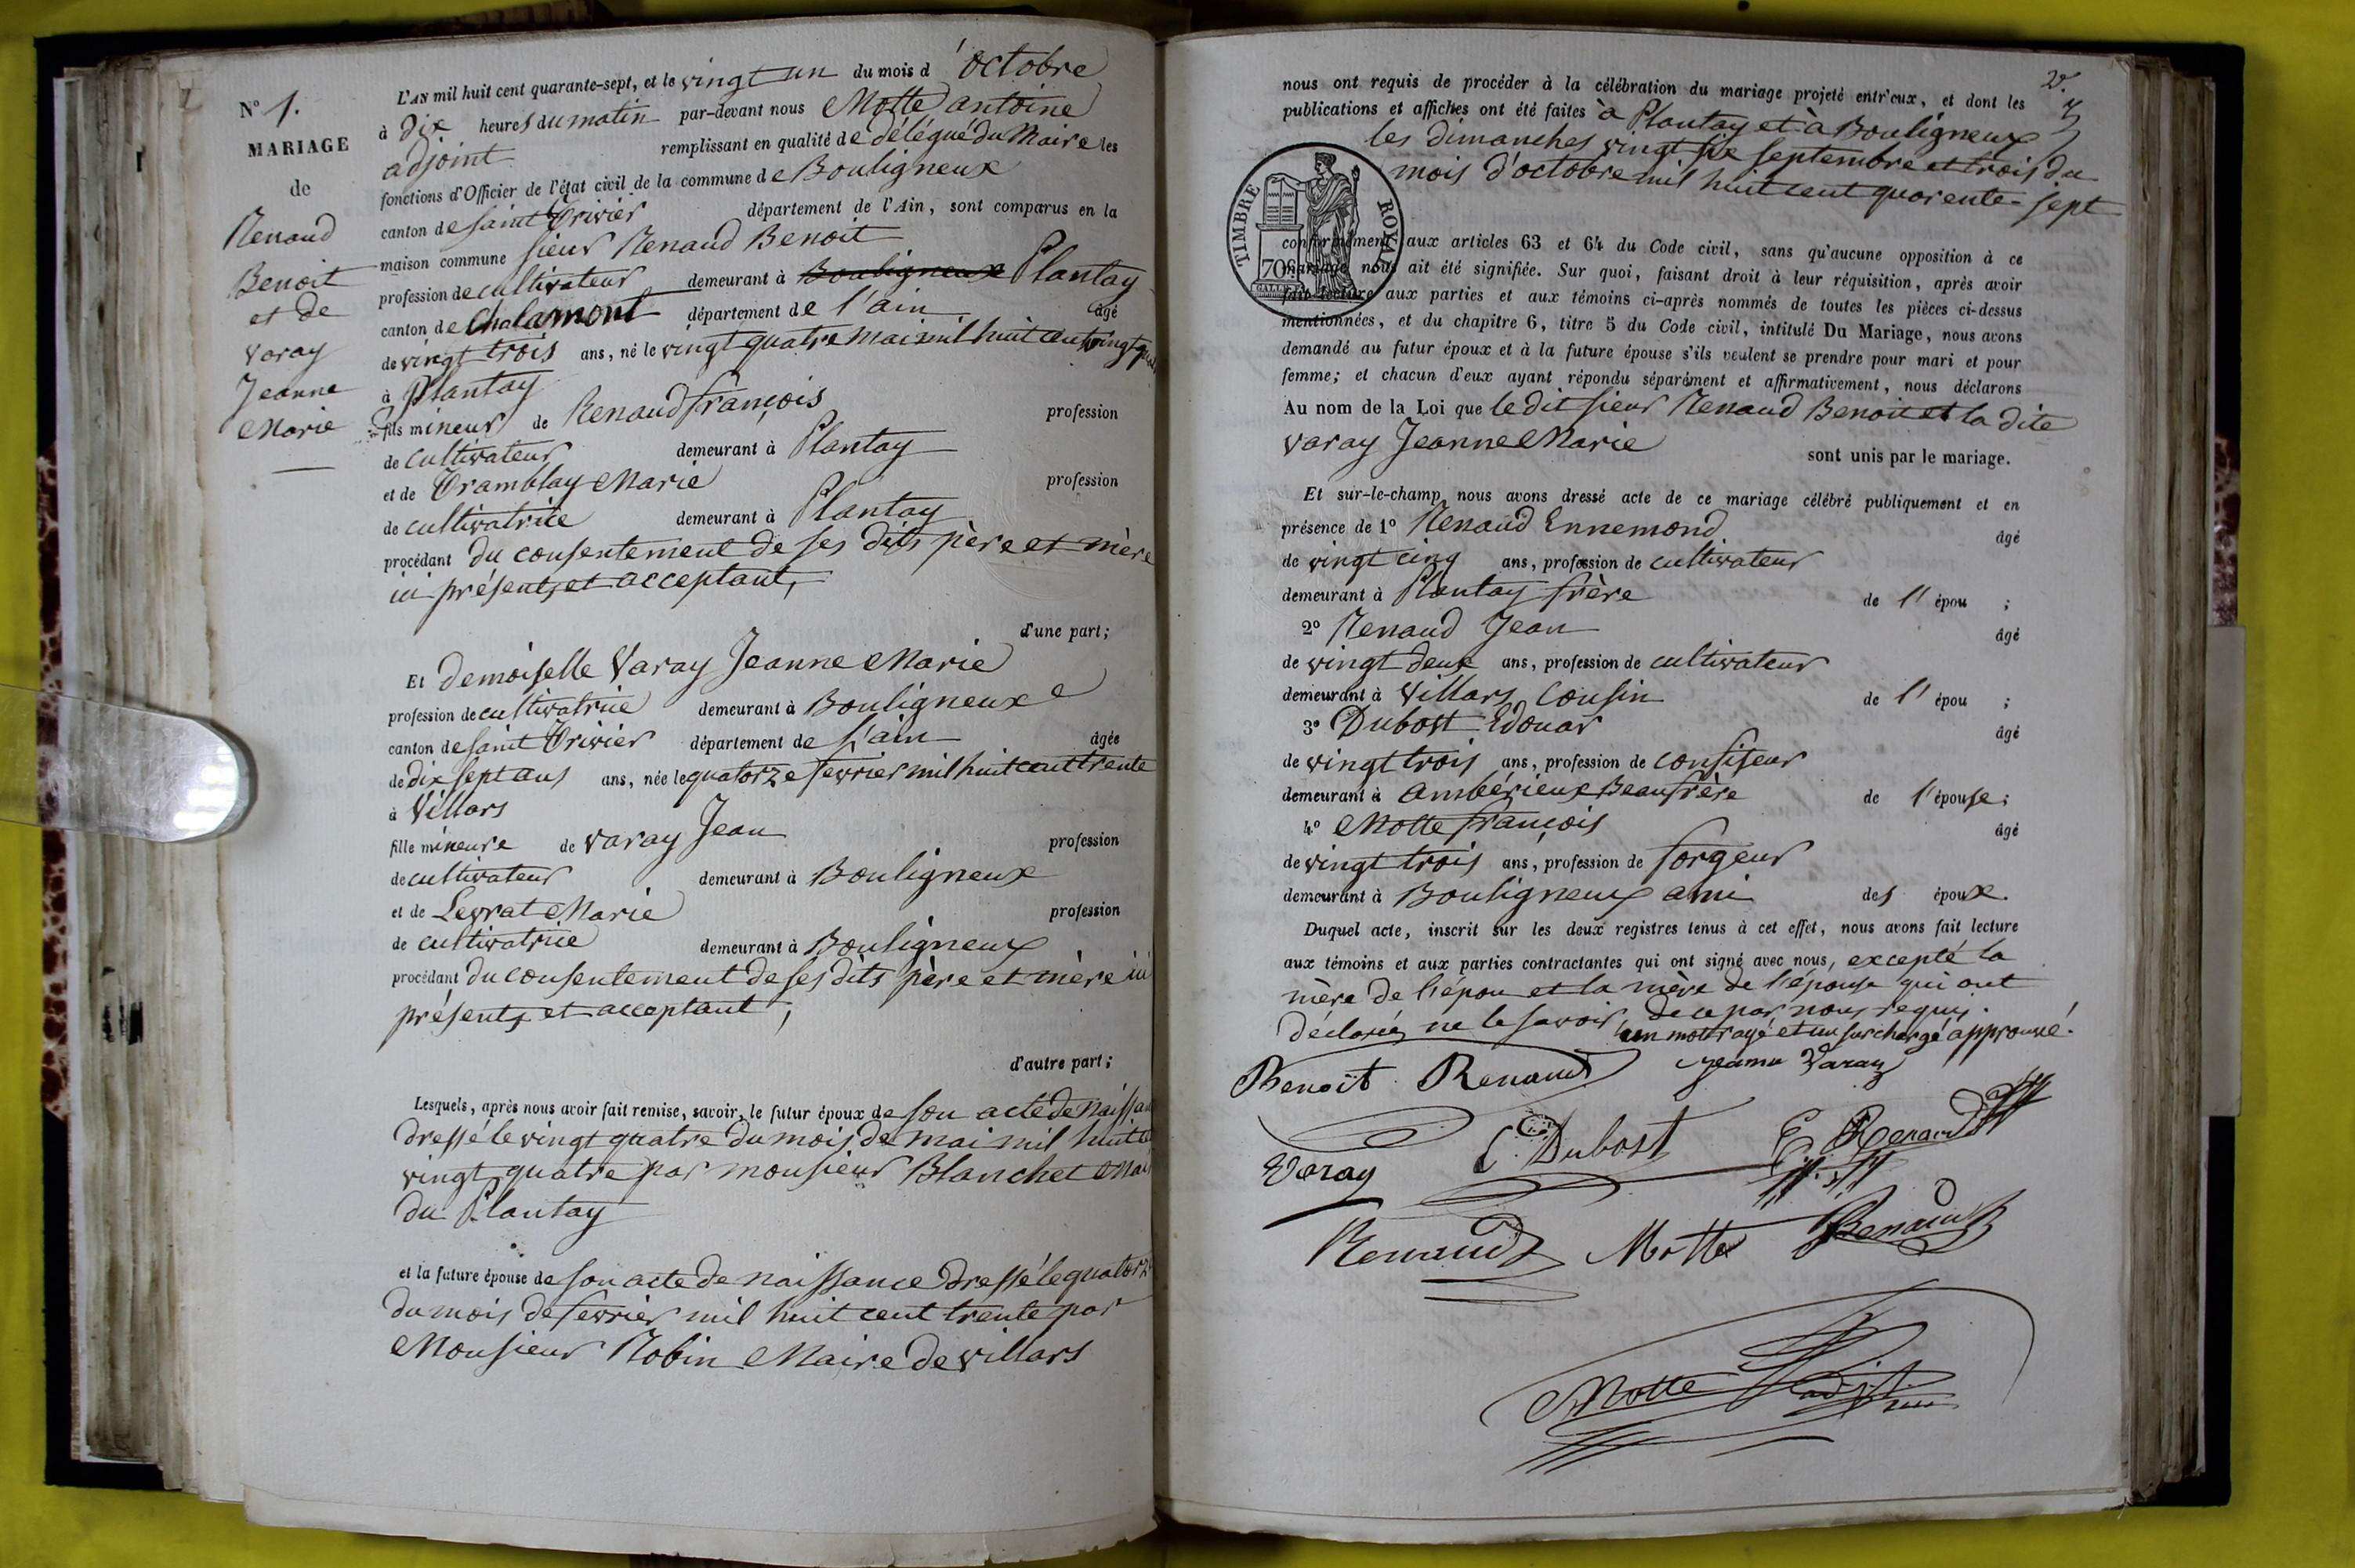 N° 1.
MARIAGE
de
Renaud
Benoit
et de
varay
Jeanne
Marie
L'AN mil huit cent quarante-sept, et le vingt un du mois d'octobre
à dix heures du matin par-devant nous Motte antoine
adjoint remplissant en qualité de délégué du Maire les
fonctions d'Officier de l'état civil de la commune de Bouligneux
canton de saint Trivier département de l'Ain, sont comparus en la
maison commune sieur Renaud Benoit
profession de cultivateur demeurant à Bouligneux Plantay
canton de Chalamont département de l'ain âgé
de vingt trois ans, né le vingt quatre mai mil huit cent vingt
à Plantay
fils mineur de Renaud françois profession
de cultivateur demeurant à Plantay
et de Tramblay Marie profession
de cultivatrice demeurant à Plantay
procédant du consentement de ses dits père et mère
ici présents et acceptant,
d'une part;
Et demoiselle Varay Jeanne Marie
profession de cultivatrice demeurant à Bouligneux
canton de saint Trivier département de L'ain âgée
de dix sept ans ans, née le quatorze fevrier mil huit cent trente
à Villars
fille mineure de varay Jean profession
de cultivateur demeurant à Bouligneux
et de Levrat Marie profession
de cultivatrice demeurant à Bouligneux
procédant du consentement de ses dits père et mère ici
présents et acceptant,
d'autre part;
Lesquels, après nous avoir fait remise, savoir, le futur époux de son acte de naissan
dressé le vingt quatre du mois de mai mil huit
vingt quatre par monsieur Blanchet Mai
du Plantay
et la future épouse de son acte de naissance dressé le quatorz
du mois de fevrier mil huit cent trente par
Monsieur Robin Maire de villars
nous ont requis de procéder à la célébration du mariage projeté entr'eux, et dont les
publications et affiches ont été faites à Plantay et à Bouligneux
les dimanches vingt six septembre et trois du
mois d'octobre mil huit cent quarente-sept
TIMBRE ROYAL
70c
conformément aux articles 63 et 64 du Code civil, sans qu'aucune opposition à ce
mariage nous ait été signifiée. Sur quoi, faisant droit à leur réquisition, après avoir
fait lecture aux parties et aux témoins ci-après nommés de toutes les pièces ci-dessus
mentionnées, et du chapitre 6, titre 5 du Code civil, intitulé Du Mariage, nous avons
demandé au futur époux et à la future épouse s'ils veulent se prendre pour mari et pour
femme; et chacun d'eux ayant répondu séparément et affirmativement, nous déclarons
Au nom de la Loi que le dit sieur Renaud Benoit et la dite
varay Jeanne Marie sont unis par le mariage.
Et sur-le-champ nous avons dressé acte de ce mariage célébré publiquement et en
présence de 1° Renaud Ennemond âgé
de vingt cinq ans, profession de cultivateur
demeurant à Plantay frère de l'épou ;
2° Renaud Jean âgé
de vingt deux ans, profession de cultivateur
demeurant à Villars, Cousin de l'épou ;
3° Dubost Edouar âgé
de vingt trois ans, profession de confiseur
demeurant à Ambérieux Beaufrère de l'épouse;
4° Motte françois âgé
de vingt trois ans, profession de forgeur
demeurant à Bouligneux ami des époux.
Duquel acte, inscrit sur les deux registres tenus à cet effet, nous avons fait lecture
aux témoins et aux parties contractantes qui ont signé avec nous, excepté la
mère de l'épou et la mère de l'épouse qui ont
déclarées ne le savoir de ce par nous requis.
un mot rayé et un surchargé approuvé.
Benoit Renaud Jeanne Varay
Varay E. Dubost E Renaud
Renaud Motte Renaud
Motte adjt